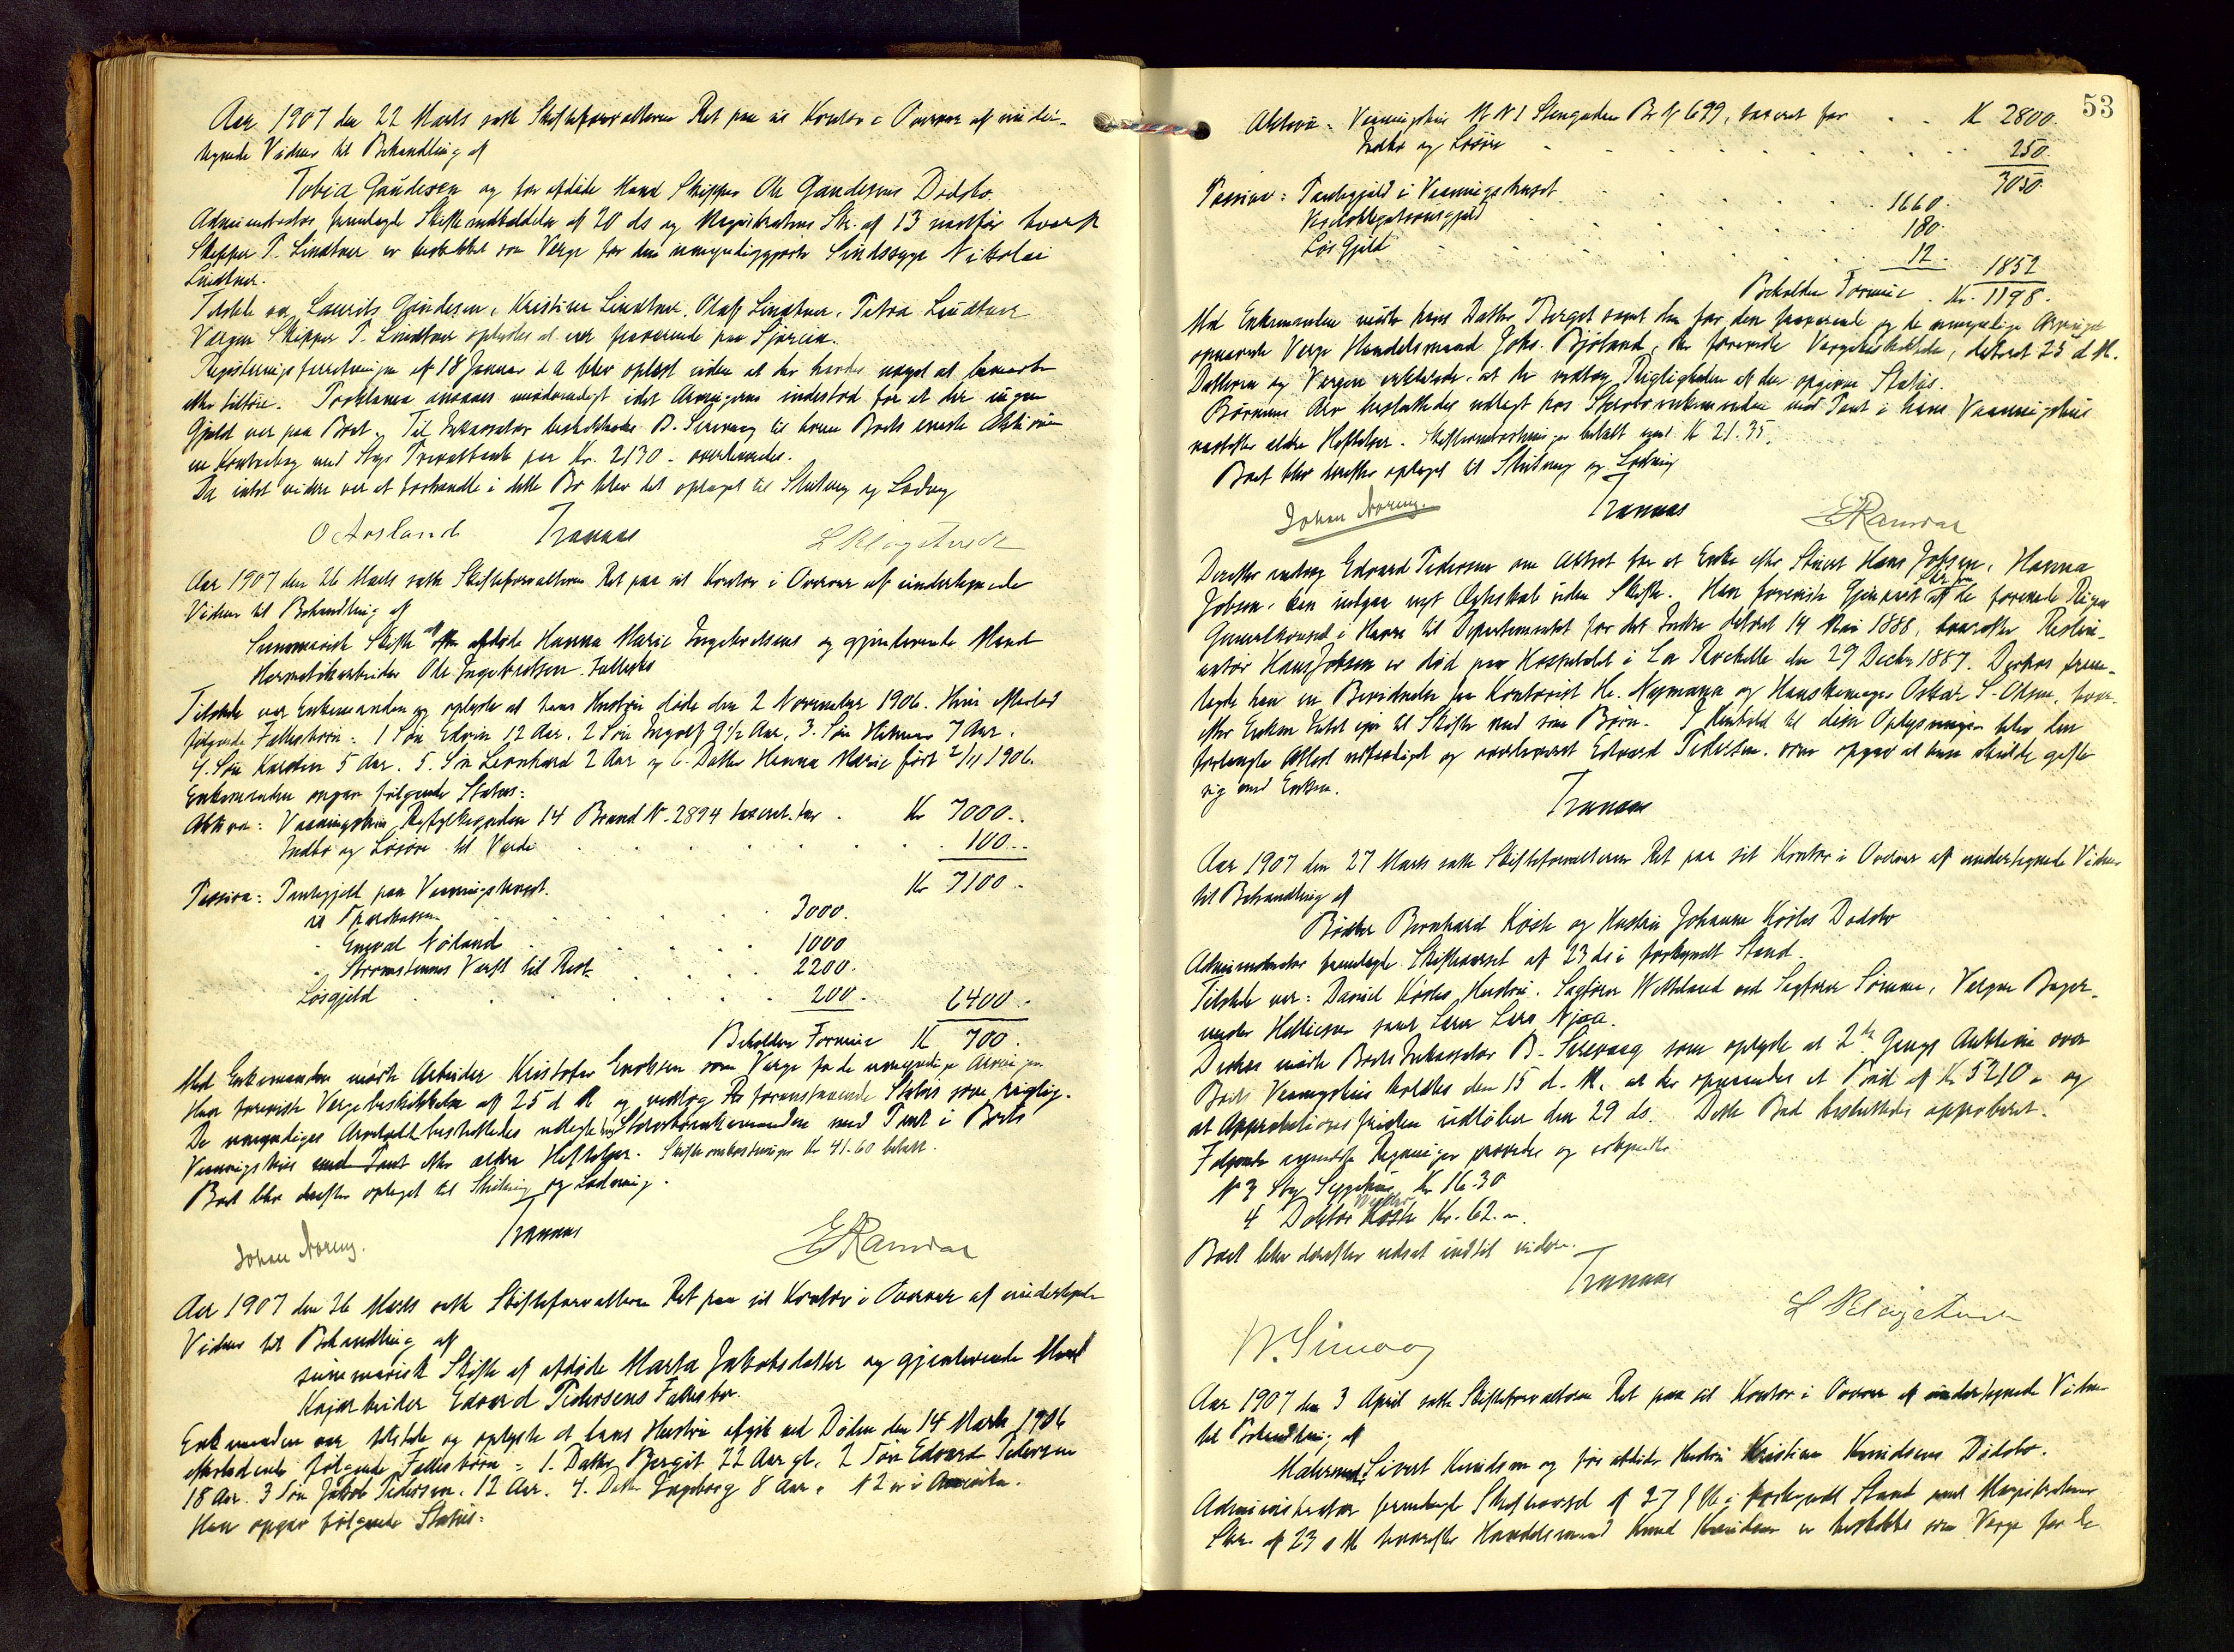 Aar 1907 den 22 Marts satte Skifteforvalteren Ret paa sit Kontor i Overvær af under-
tegnede Vidner til Behandling af
Tobia Gaudesen og før afdøde Mand Skipper Ole Gaudesens Dødsbo.
Administrator fremlagde Skifteindkaldelse af 20 ds og Magistratens Skr. af 13
Skipper P. Lindtner er beskikket som Verge for den umyndiggjorte Sindssyge Nikolai
Lindtner.
Tilstede var Laurits Gaudesen, Kristine Lindtner, Olaf Lindtner, Petra Lindtner
Vergen Skipper P. Lindtner oplystes at være fraværende paa Sjøreise.
Registreringsforretningen af 18 Januar d A blev oplæst uden at der havdes noget at bemærke
eller tilføie. Proklama ansaaes unødvendigt idet Arvingerne indestod for at der ingen
Gjæld var paa Boet. Til Inkassator beskikkedes B. Selevaag til hvem Boets eneste Aktivum
en Kontrabog med Stvgs Privatbank paa Kr. 2130 - overleveredes.
Da intet videre var at forhandle i dette Bo blev det optaget til Slutning og Lodning
O Aasland Tranaas L Klagstveit
Aar 1907 den 26 Marts satte Skifteforvalteren Ret paa sit Kontor i Overvær af undertegnede
Vidner til Behandling af
Summarisk Skifte af afdøde Hanna Marie Ingebretsens og gjenlevende Mand
Hermetikarbeider Ole Ingebretsen Fællesbo
Tilstede var Enkemanden og oplyste at hans Hustru døde den 2 November 1906. Hun efterlod
følgende Fællesbørn: 1 Søn Edvin 12 Aar. 2 Søn Ingolf 9½ Aar. 3. Søn Hilmar 7 Aar.
4. Søn Karsten 5 Aar. 5. Søn Leonhard 2 Aar og 6. Datter Hanna Marie født 2/11 1906.
Enkemanden opgav følgende Status:
Aktiva: Vaaningshus Ryfylkegaden 14 Brand No. 2894 taxeret for . Kr 7000..
Indbo og Løsøre til Værdi . . . . 100..
Kr 7100.
Passiva: Pantegjæld paa Vaaningshuset.
til Sparekassen 3000.
" Enevald Nøland 1000
" Strømstenes Værft til Rest 2200.
Løsgjæld 200. 6400.
Beholden Formue K 700.
Med Enkemanden mødte Arbeider Kristofer Enoksen som Verge for de umyndige Arvinger
Han foreviste Vergebeskikkelse af 25 d M og vedtog foranstaaende Status som rigtig.
De umyndiges Arvelodd besluttedes udlagt hos Stervboenkemanden med Pant i Boets
Vaaningshus med Pant efter ældre Heftelser. Skifteomkostninger Kr 41.60 betalt.
Boet blev derefter optaget til Slutning og Lodning.
Johan Noreng. Tranaas E Ramdal
Aar 1907 den 26 Marts satte Skifteforvalteren Ret paa sit Kontor i Overvær af undertegnede
Vidner til Behandling af
summarisk Skifte af afdøde Marta Jakobsdatter og gjenlevende Mand
Edvard Pedersens Fællesbo.
Enkemanden var tilstede og oplyste at hans Hustru afgik ved Døden den 14 Marts 1906
efterladende følgende Fællesbørn = 1. Datter Bergit 22 Aar gl. 2 Søn Edvard Pedersen
18 Aar. 3 Søn Jakob Pedersen. 12 Aar. 4. Datter Ingeborg 8 Aar. N 2 er i Amerika.
Han opgav følgende Status:
53
Aktiva: Vaaningshus M N 1 Stengaden Br N 699, taxeret for . . K 2800.
Indbo og Løsøre 250.
3050.
Passiva: Pantegjæld i Vaaningshuset 1660.
180.
Løs Gjæld 12. 1852
Beholden Formue . Kr. 1198.
Med Enkemanden mødte hans Datter Berget samt den for den fraværende og de umyndige Arvinger
opnævnte Verge Handelsmand Johs. Bjøland, der foreviste Vergebeskikkelse, dateret 25 d M.
Datteren og Vergen erklærede, at de vedtog Rigtigheden af den opgivne Status.
Børnenes Arv besluttedes udlagt hos Stervboenkemanden med Pant i hans Vaaningshus
næstefter ældre Heftelser. Skifteomkostninger betalt med K 21.35.
Boet blev derefter optaget til Slutning og Lodning
Johan Noreng. Tranaas E Ramdal
Derefter androg Edvard Pedersen om Attest for at Enke efter Stuert Hans Jobsen, Hanna
Jobsen, kan indgaa nyt Ægteskab uden Skifte. Han foreviste Gjenpart af Skr. fra de forenede Rigers
Generalkonsul i Havre til Departementet for det Indre dateret 14 Mai 1888, hvorefter
Hans Jobsen er død paa Hospitalet i La Rochelle den 29 Decbr 1887. Derhos frem-
lagde han en Bevidnelse fra Kontorist He. Nymann og Hanskemager Oskar S. Olsen, hvor-
efter Enken Intet eier til Skifte med sine Børn. I Henhold til disse Oplysninger blev den
forlangte Attest udfærdiget og overleveret Edvard Pedersen, som opgav at han skulde gifte
sig med Enken.
Tranaas
Aar 1907 den 27 Marts satte Skifteforvalteren Ret paa sit Kontor i Overvær af undertegnede Vidner
til Behandling af
Bødker Bernhard Køste og Hustru Johanne Køstes Dødsbo
Administrator fremlagde Skiftevarsel af 23 ds i forkyndt Stand.
Tilstede var: Daniel Køstes Hustru. Sagfører Wetteland ved Sagfører Sømme, Vergen
Helliesen samt Lærer Lars Njaa.
Derhos mødte Boets Inkassator B. Selevaag som oplyste at 2den Gangs Auktion over
Boets Vaaningshus holdtes den 15 d. M. at der opnaaedes et Bud af Kr 5210.- og
at Approbationsfristen udløber den 29 ds. Dette Bud besluttedes approberet.
Følgende anmeldte Regninger prøvedes og erkjendtes:
N 3 Stvg Sygehus Kr 16.30
4 Doktor Køste Kr. 62.-.
Boet blev derefter udsat indtil videre.
Tranaas
L Klagstveit
Aar 1907 den 3 April satte Skifteforvalteren Ret paa sit Kontor i Overvær af undertegnede Vidner
til Behandling af
Malermester Sivert Knudsen og før afdøde Hustru Kristine Knudsens Dødsbo.
Administrator fremlagde Skiftevarsel af 27 f M i forkyndt Stand samt Magistratens
Skr. af 23 s M hvorefter Handelsmand Knud Knudsen er beskikket som Verge for de